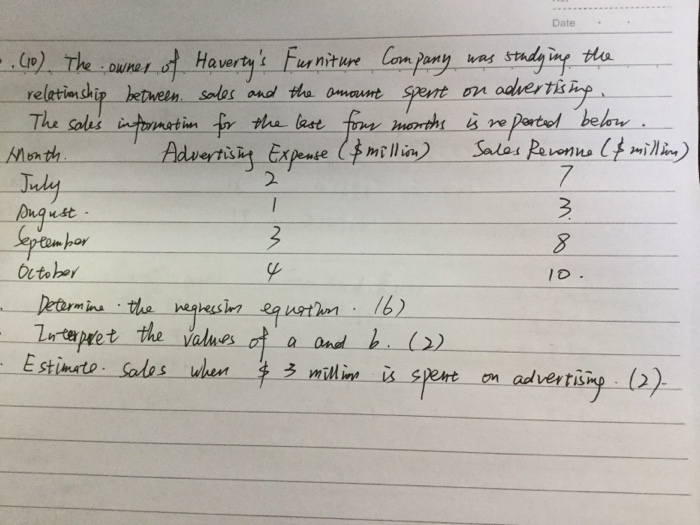 Date
(10) The owner of Haverty's Furniture Company was studying the
relationship between sales and the amount spent on advertising.
The sales information for the last four months is reported below.
Month. Advertising Expense ($ million) Sales Revenue ($ million)
July 2 7
August. 1 3
September 3 8
October 4 10.
Determine the regression equation. (6)
Interpret the values of a and b. (2)
Estimate. Sales when $ 3 million is spent on advertising. (2).